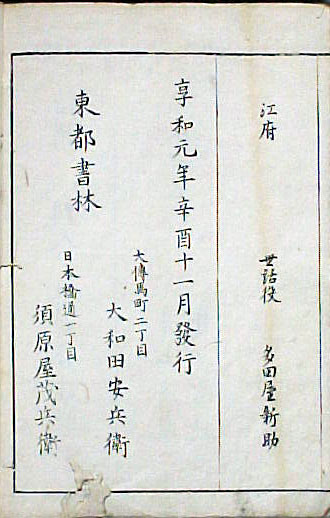 江府 世話役 多田屋新助
享和元年辛酉十一月發行
東都書林
大傳馬町二丁目
大和田安兵衛
日本橋通一丁目
須原屋茂兵衛